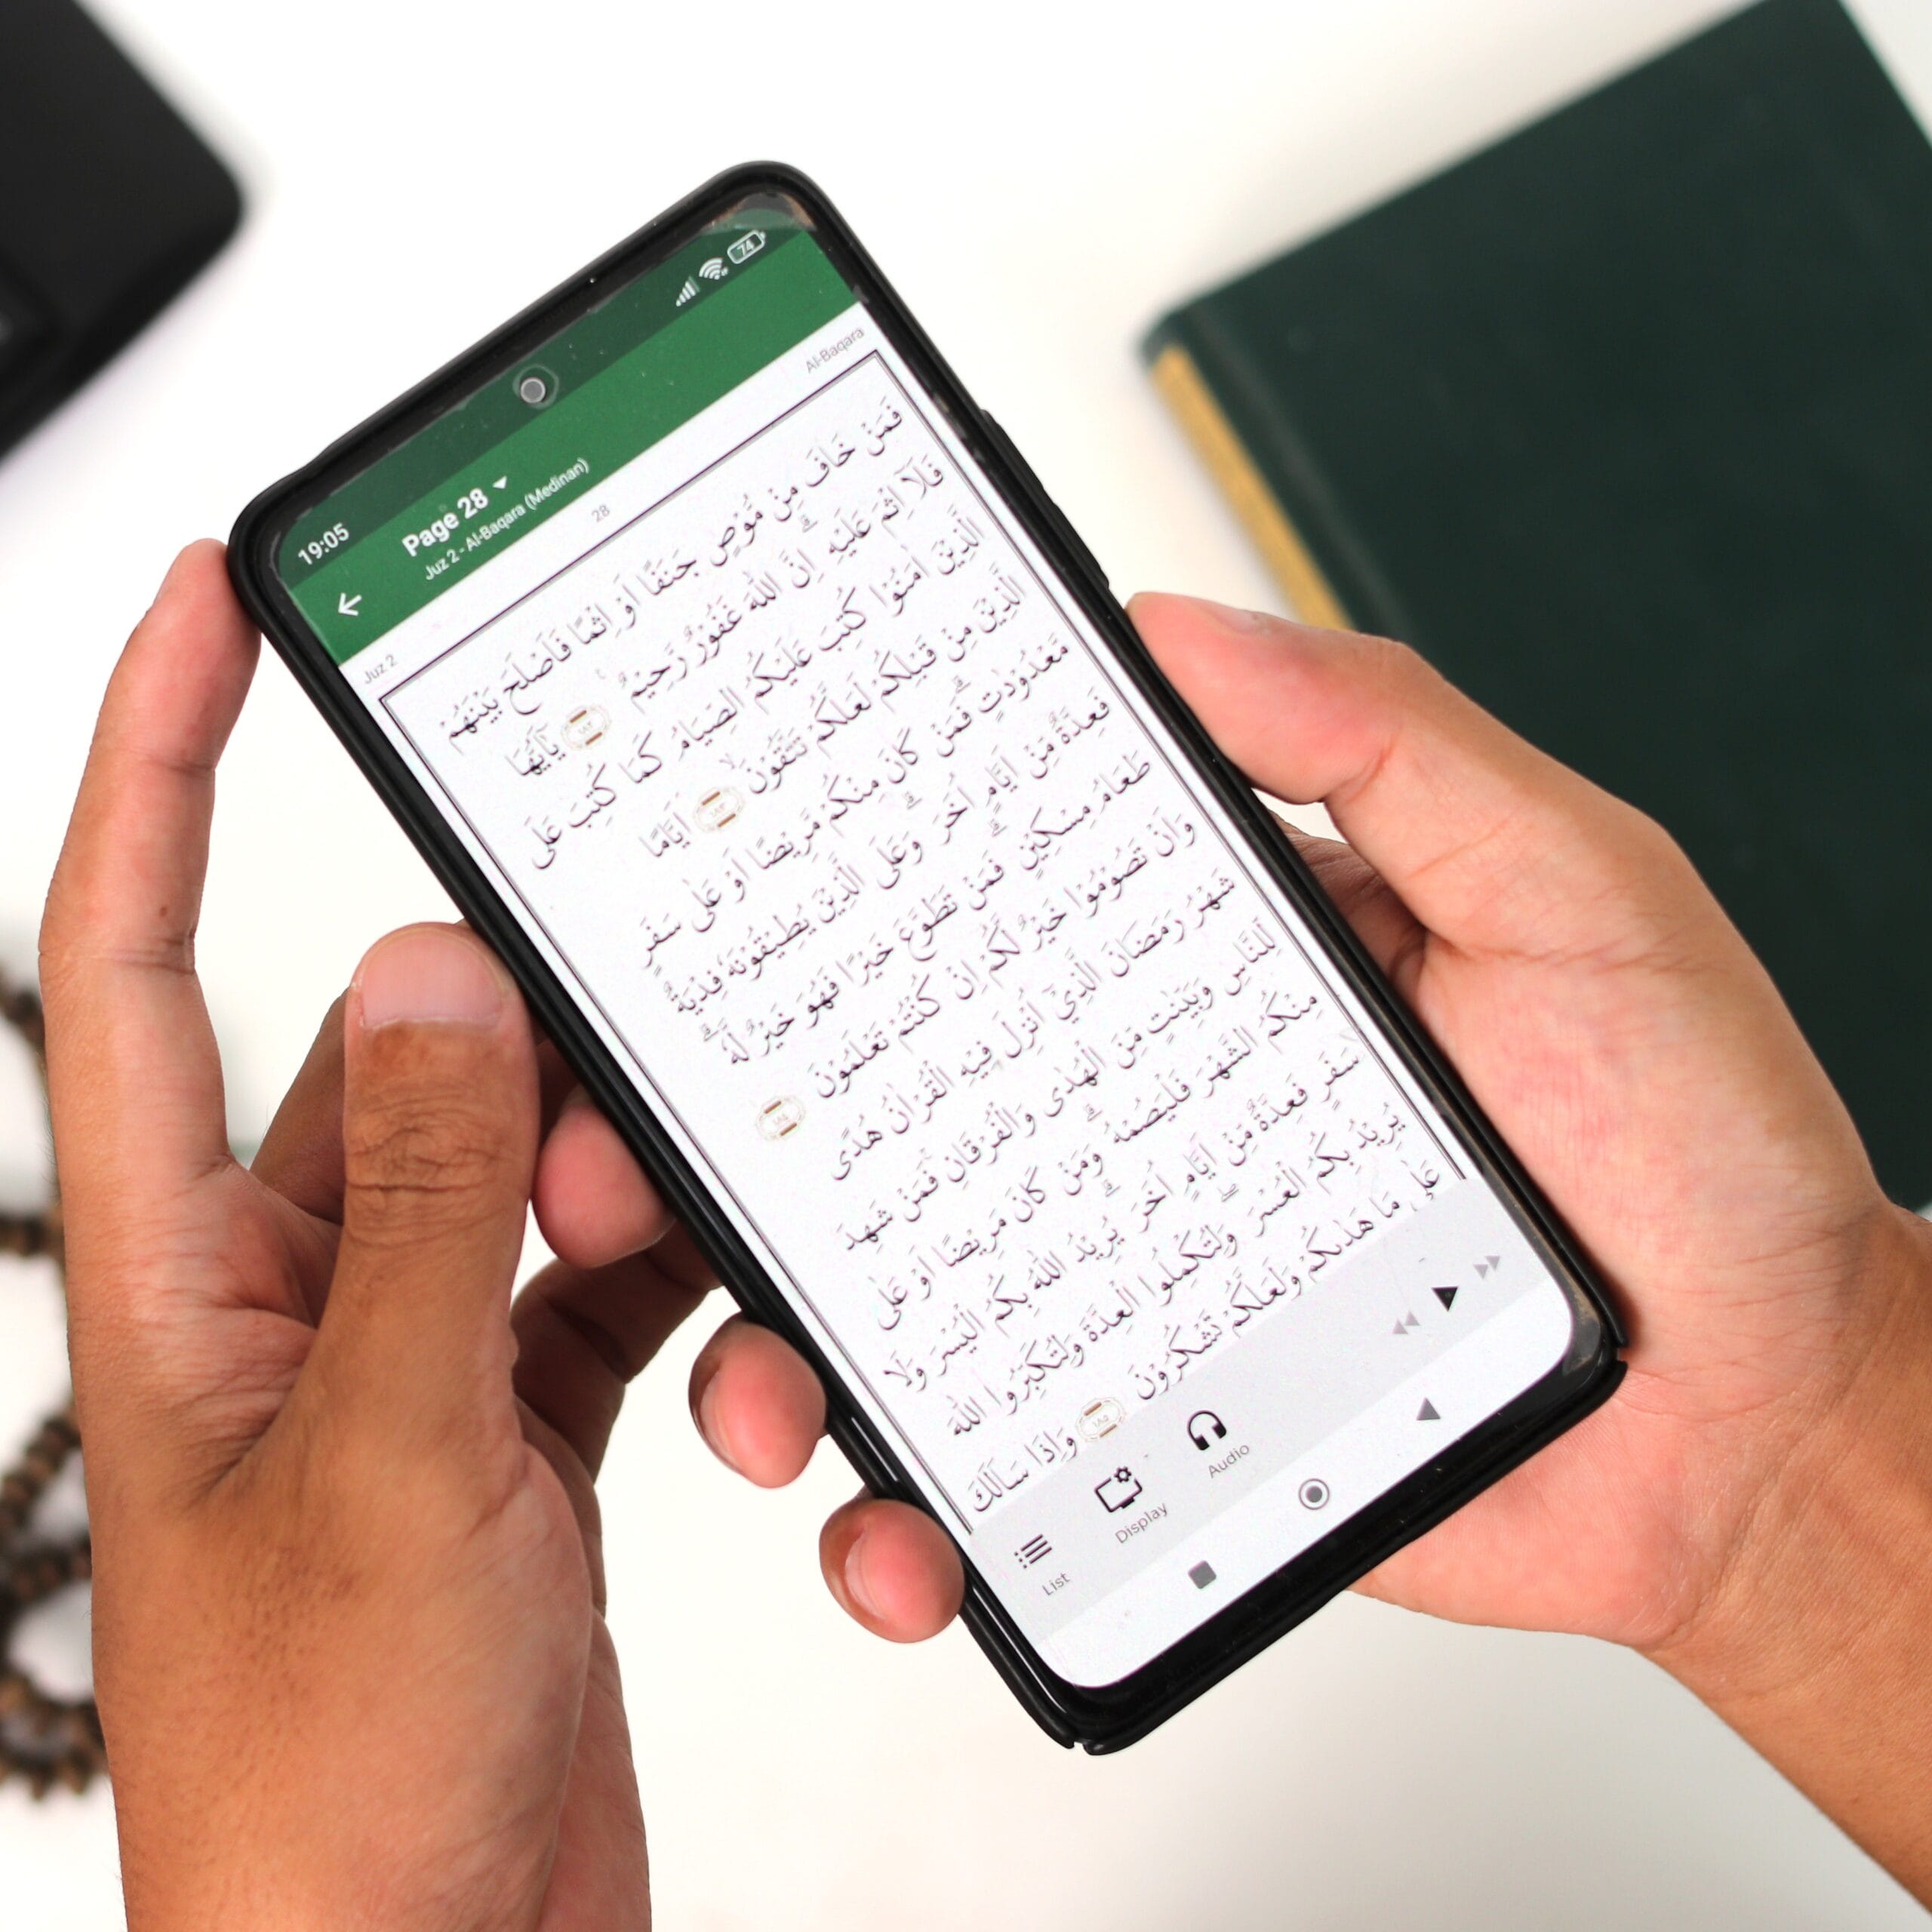 19:05
74
Page 28
Juz 2 - Al-Baqara (Medinan)
Juz 2
28
Al-Baqara
فَمَنْ خَافَ مِنْ مُّوْصٍ جَنَفًا اَوْ اِثْمًا فَاَصْلَحَ بَيْنَهُمْ
فَلَآ اِثْمَ عَلَيْهِ ۗ اِنَّ اللّٰهَ غَفُوْرٌ رَّحِيْمٌ ࣖ ١٨٢ يٰٓاَيُّهَا
الَّذِيْنَ اٰمَنُوْا كُتِبَ عَلَيْكُمُ الصِّيَامُ كَمَا كُتِبَ عَلَى
الَّذِيْنَ مِنْ قَبْلِكُمْ لَعَلَّكُمْ تَتَّقُوْنَۙ ١٨٣ اَيَّامًا
مَّعْدُوْدٰتٍۗ فَمَنْ كَانَ مِنْكُمْ مَّرِيْضًا اَوْ عَلٰى سَفَرٍ
فَعِدَّةٌ مِّنْ اَيَّامٍ اُخَرَ ۗ وَعَلَى الَّذِيْنَ يُطِيْقُوْنَهٗ فِدْيَةٌ
طَعَامُ مِسْكِيْنٍۗ فَمَنْ تَطَوَّعَ خَيْرًا فَهُوَ خَيْرٌ لَّهٗ ۗ
وَاَنْ تَصُوْمُوْا خَيْرٌ لَّكُمْ اِنْ كُنْتُمْ تَعْلَمُوْنَ
شَهْرُ رَمَضَانَ الَّذِيْٓ اُنْزِلَ فِيْهِ الْقُرْاٰنُ هُدًى
لِّلنَّاسِ وَبَيِّنٰتٍ مِّنَ الْهُدٰى وَالْفُرْقَانِۚ فَمَنْ شَهِدَ
مِنْكُمُ الشَّهْرَ فَلْيَصُمْهُ ۗ وَمَنْ كَانَ مَرِيْضًا اَوْ عَلٰى
سَفَرٍ فَعِدَّةٌ مِّنْ اَيَّامٍ اُخَرَ ۗ يُرِيْدُ اللّٰهُ بِكُمُ الْيُسْرَ وَلَا
يُرِيْدُ بِكُمُ الْعُسْرَ ۖ وَلِتُكْمِلُوا الْعِدَّةَ وَلِتُكَبِّرُوا اللّٰهَ
عَلٰى مَا هَدٰىكُمْ وَلَعَلَّكُمْ تَشْكُرُوْنَ ١٨٥ وَاِذَا سَاَلَكَ
List
Display
Audio